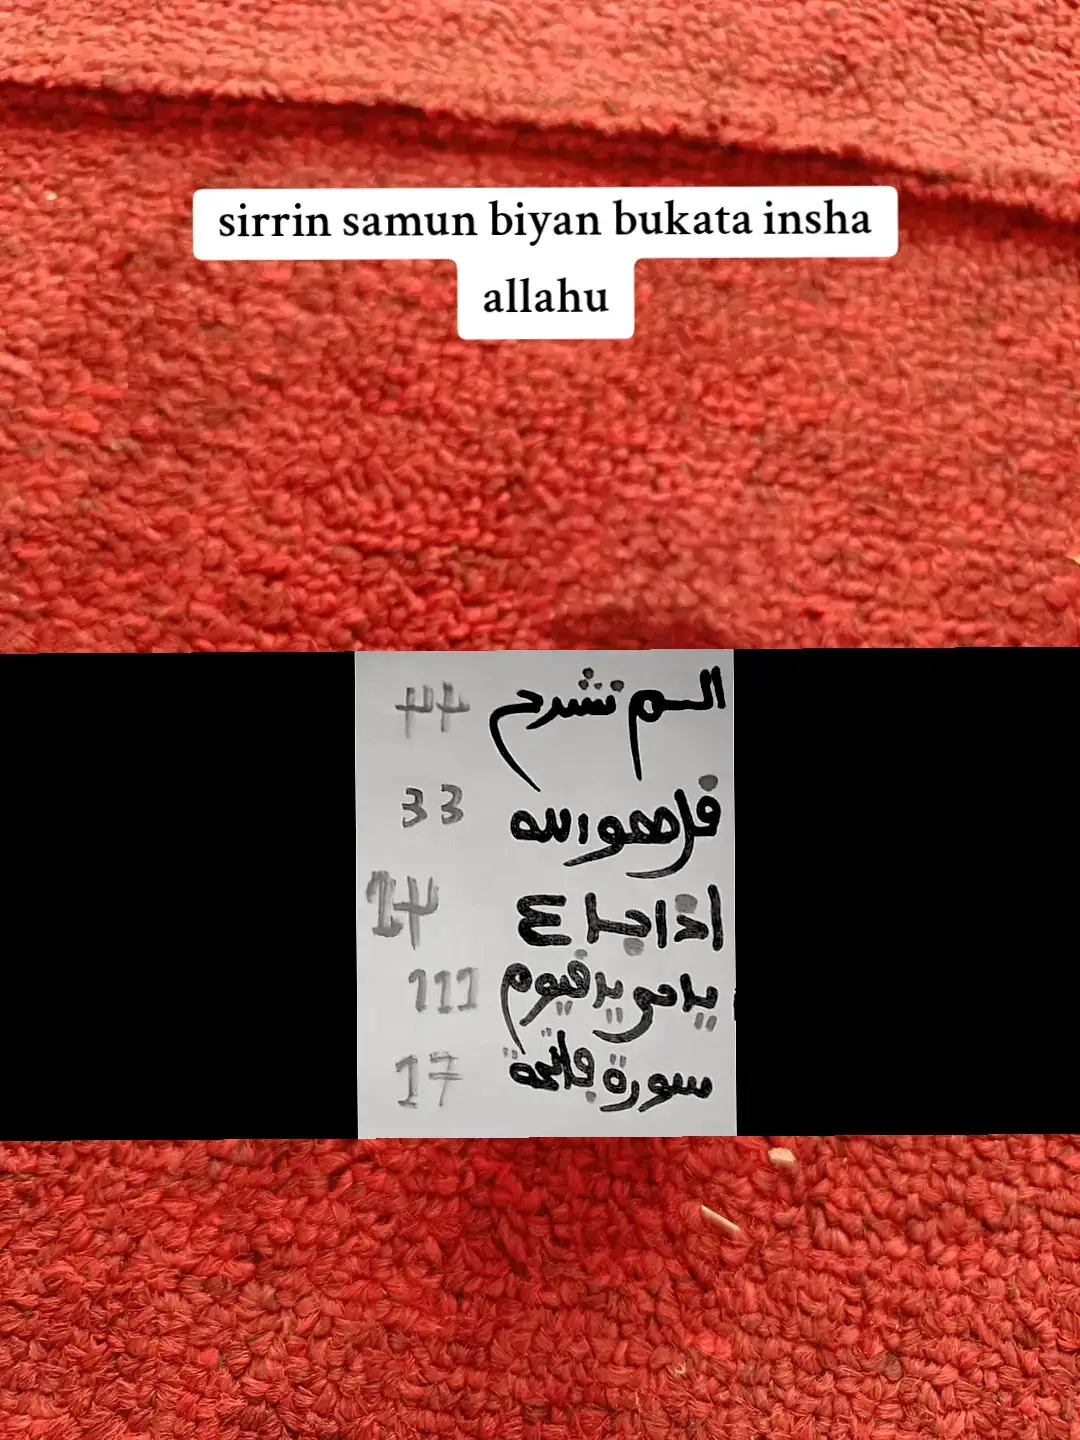 sirrin samun biyan bukata insha
allahu
الم نشرح 44
فل هوالله 33
اذاجاء 14
يا حي يا فيوم 111
سورة فاتحة 17